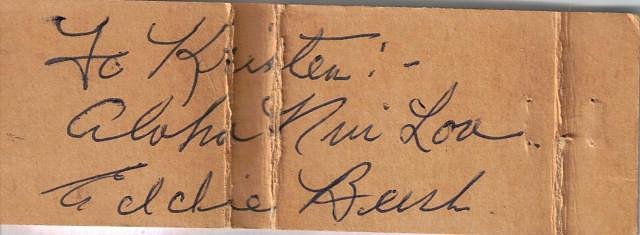 To Kristen:-
Aloha Nui Loa..
Eddie Bush